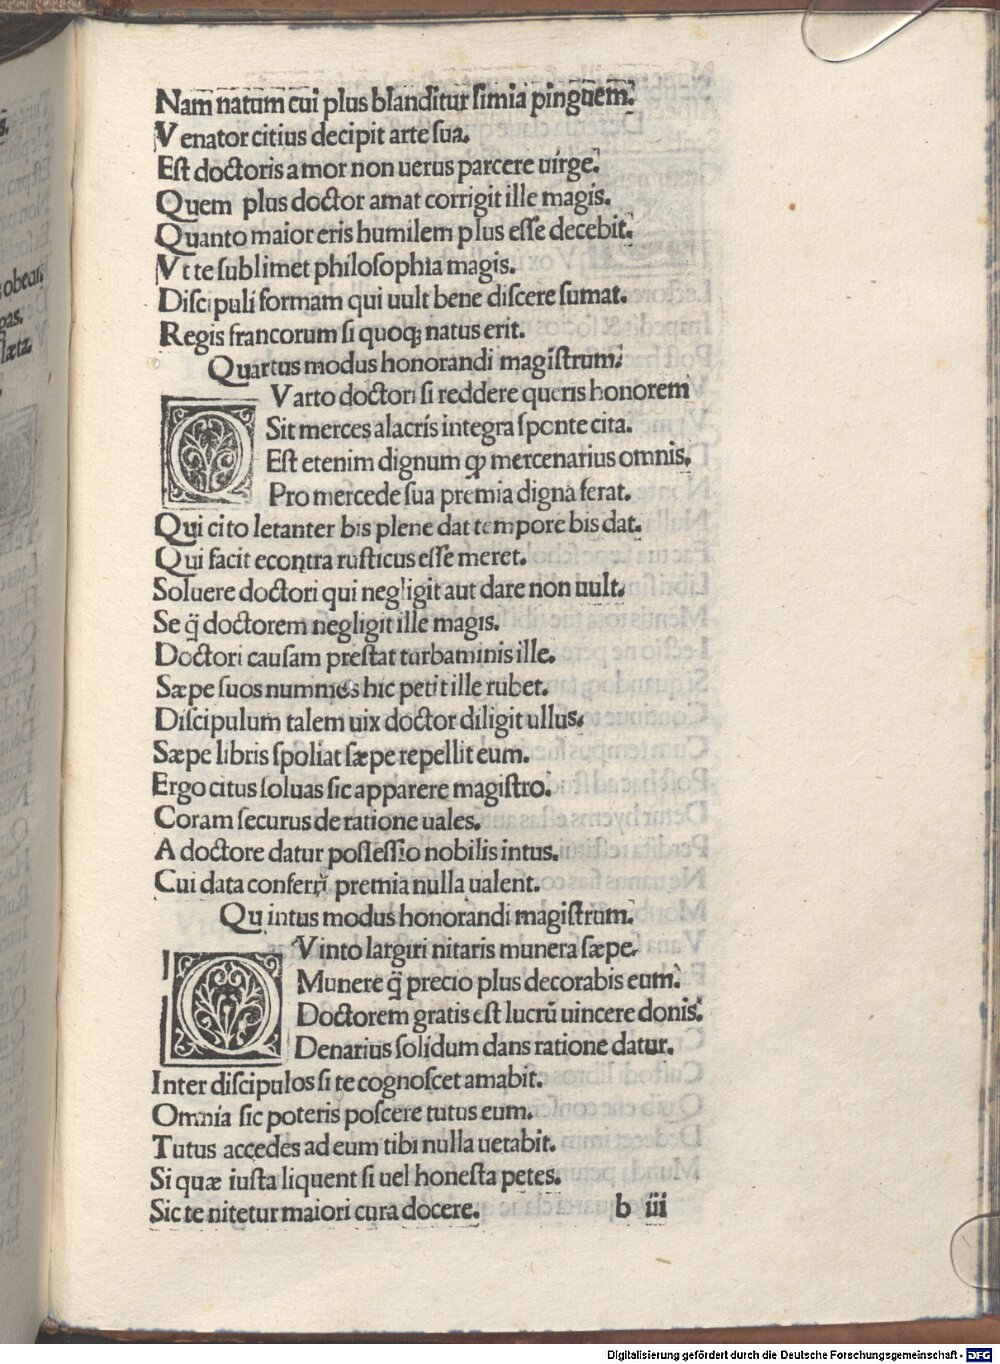 Nam natum cui plus blanditur simia pinguem.
Venator citius decipit arte sua.
Est doctoris amor non uerus parcere uirge.
Quem plus doctor amat corrigit ille magis.
Quanto maior eris humilem plus esse decebit.
Vt te sublimet philosophia magis.
Discipuli formam qui uult bene discere sumat.
Regis francorum si quoqꝫ natus erit.
Quartus modus honorandi magistrum.
Varto doctori si reddere queris honorem
Sit merces alacris integra sponte cita.
Est etenim dignum ꝙ mercenarius omnis.
Pro mercede sua premia digna ferat.
Qui cito letanter bis plene dat tempore bis dat.
Qui facit econtra rusticus esse meret.
Soluere doctori qui negligit aut dare non uult.
Se q̃ doctorem negligit ille magis.
Doctori causam prestat turbaminis ille.
Sæpe suos nummos hic petit ille rubet.
Discipulum talem uix doctor diligit ullus.
Sæpe libris spoliat sæpe repellit eum.
Ergo citus soluas sic apparere magistro.
Coram securus de ratione uales.
A doctore datur possessio nobilis intus.
Cui data conferri premia nulla ualent.
Quintus modus honorandi magistrum.
Vinto largiri nitaris munera sæpe.
Munere q̃ precio plus decorabis eum.
Doctorem gratis est lucrū uincere donis.
Denarius solidum dans ratione datur.
Inter discipulos si te cognoscet amabit.
Omnia sic poteris poscere tutus eum.
Tutus accedes ad eum tibi nulla uetabit.
Si quæ iusta liquent si uel honesta petes.
Sic te nitetur maiori cura docere.
b iii
s.
obear.
gas.
læta.
Digitalisierung gefördert durch die Deutsche Forschungsgemeinschaft - DFG